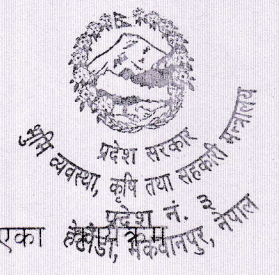 प्रदेश सरकार
भूमि व्यवस्था, कृषि तथा सहकारी मन्त्रालय
प्रदेश नं. ३
हेटौंडा, मकवानपुर, नेपाल
एका